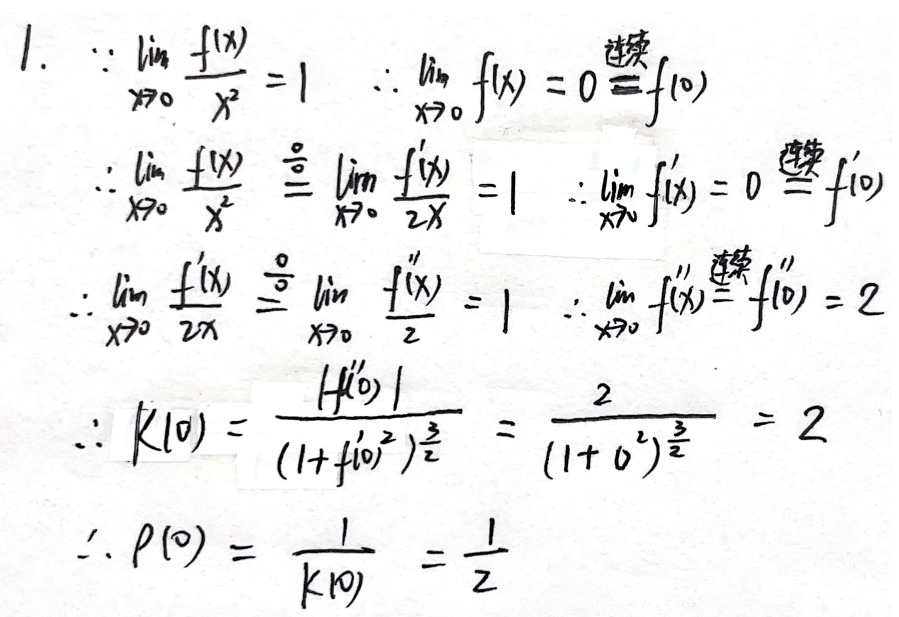 1. ∵ lim_{x→0} f(x)/x² = 1 ∴ lim_{x→0} f(x) = 0 \overset{连续}{=} f(0)
∴ lim_{x→0} f(x)/x² \overset{0/0}{=} lim_{x→0} f'(x)/2x = 1 ∴ lim_{x→0} f'(x) = 0 \overset{连续}{=} f'(0)
∴ lim_{x→0} f'(x)/2x \overset{0/0}{=} lim_{x→0} f''(x)/2 = 1 ∴ lim_{x→0} f''(x) \overset{连续}{=} f''(0) = 2
∴ K(0) = |f''(0)|/(1+f'(0)²)^{3/2} = 2/(1+0²)^{3/2} = 2
∴ ρ(0) = 1/K(0) = 1/2